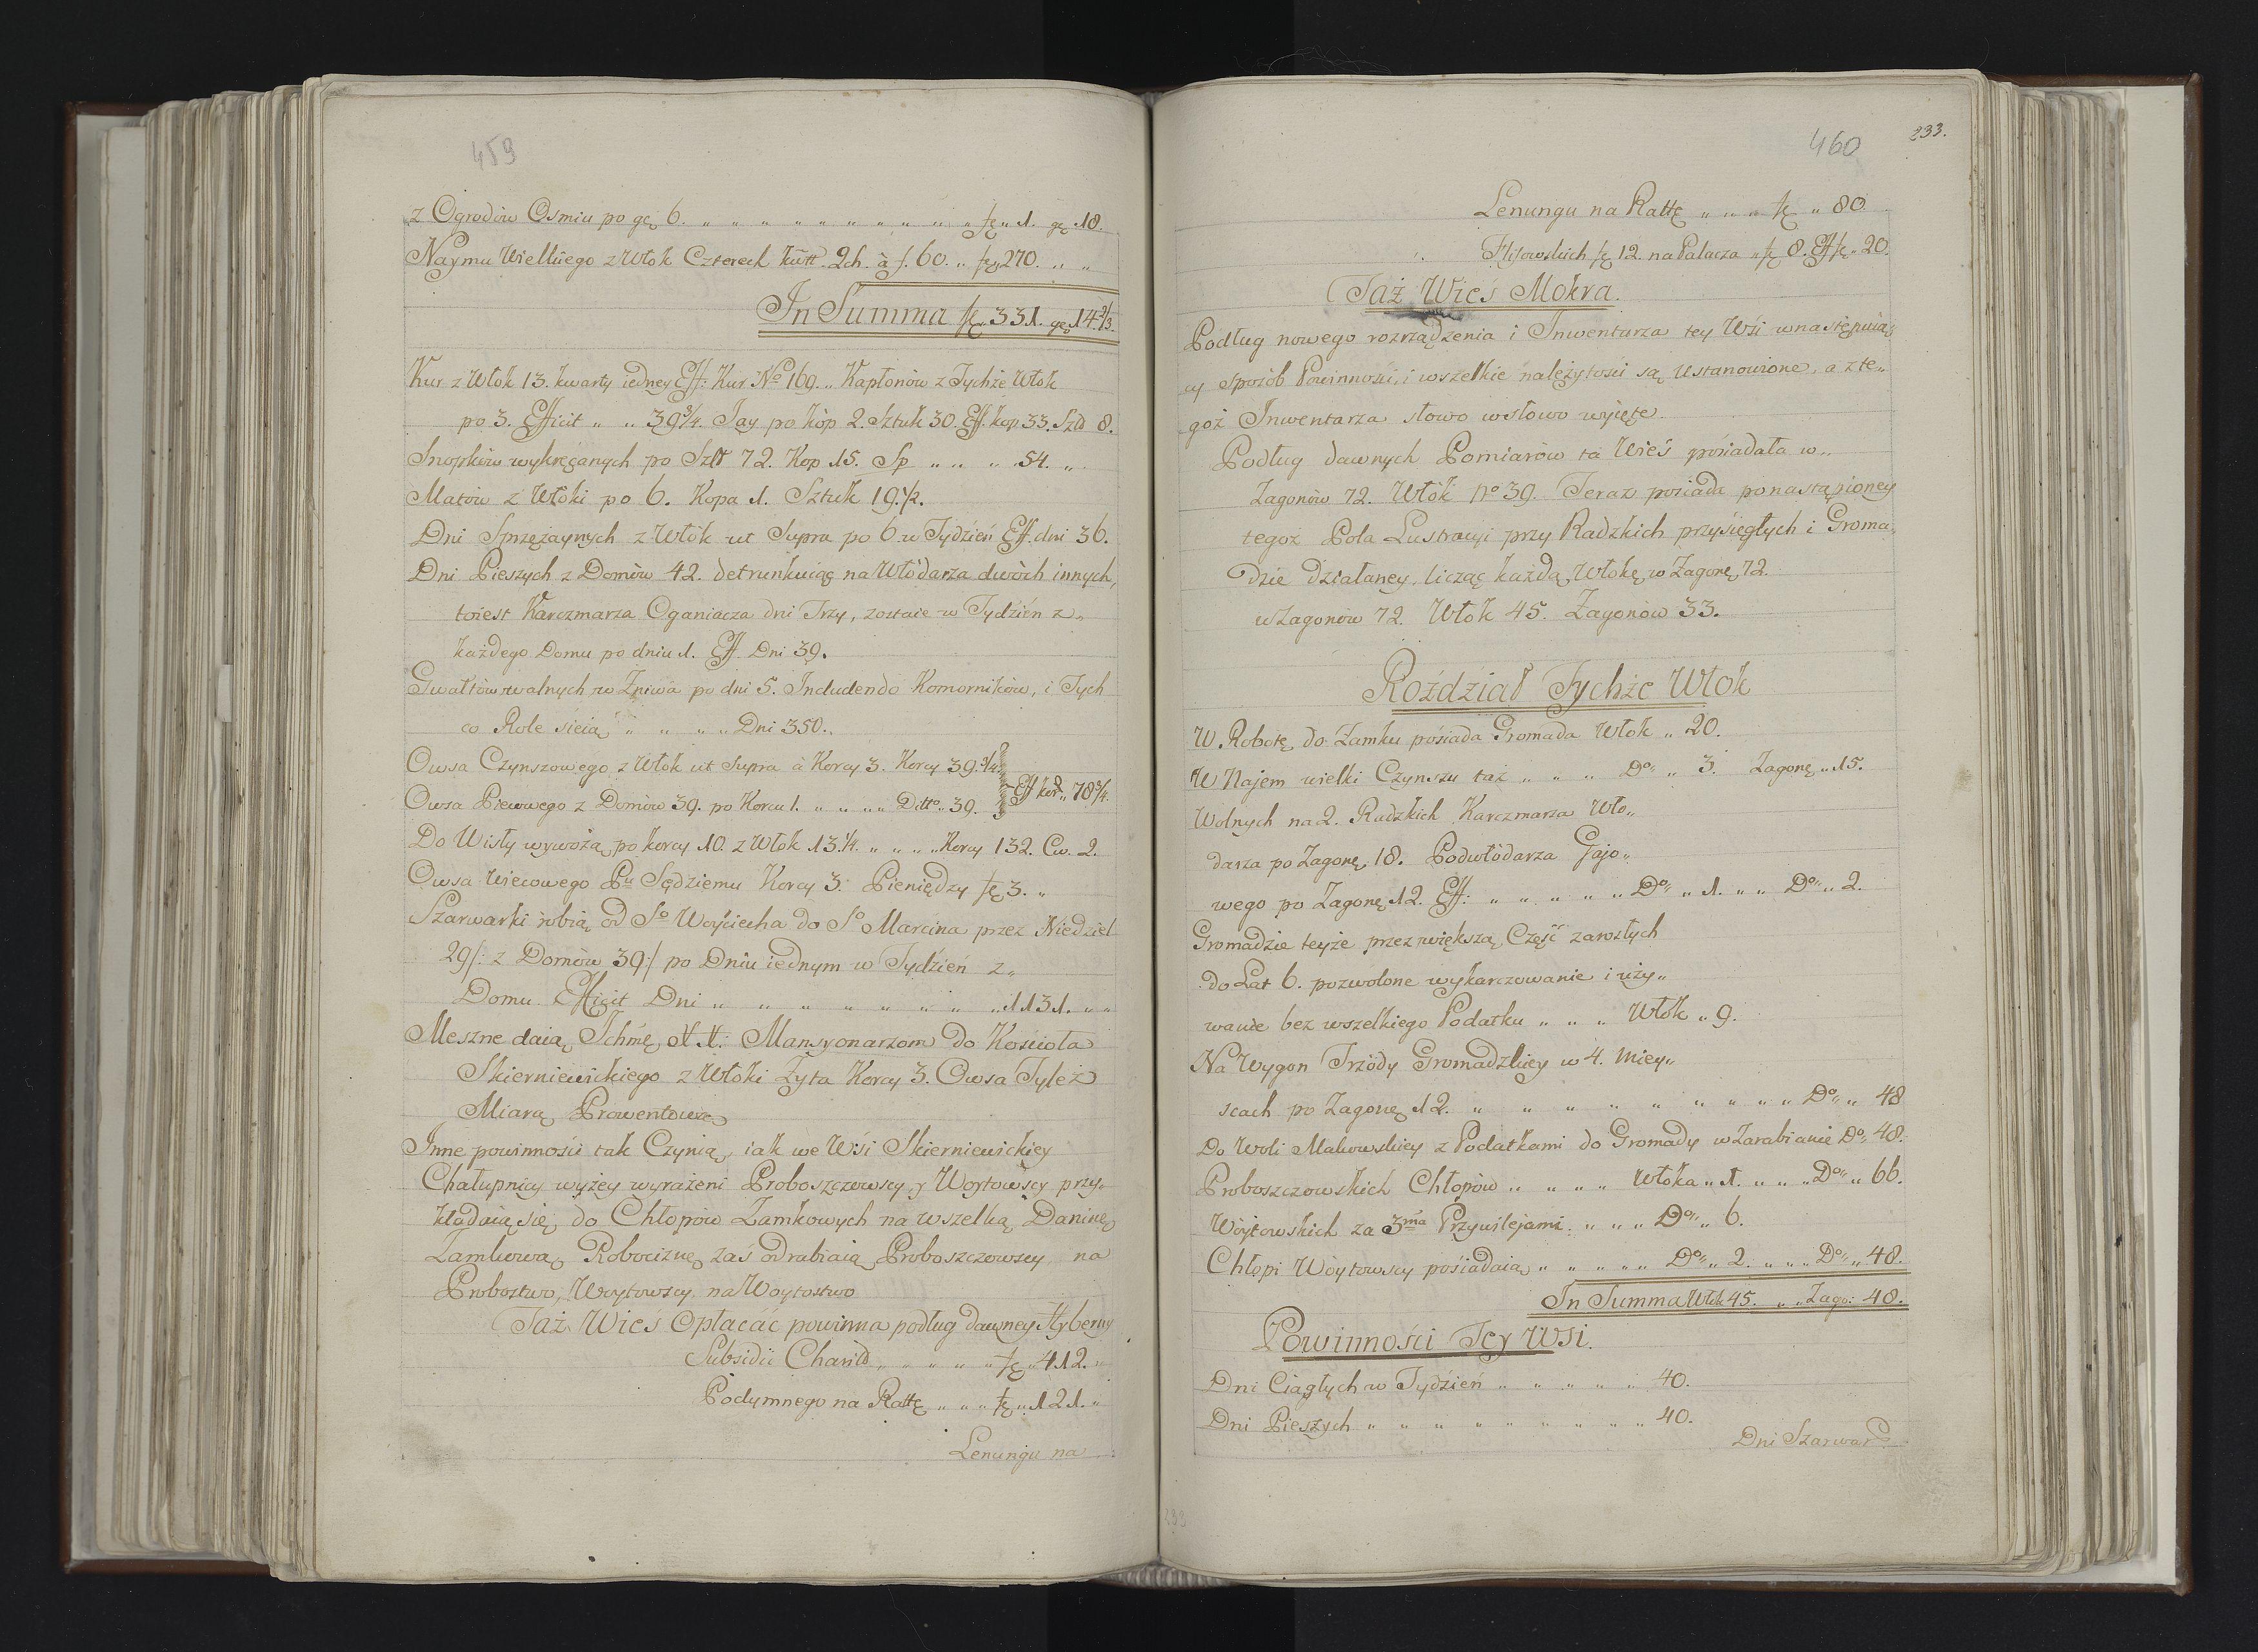 459
z Ogrodów Osmiu po gę 6. „ „ „ „ „ „ „ „ „ „ „ fę „ 1. gę 18.
Naymu Wielkiego z Włok Czterech 2ch. à f. 60. „ fę „ 270. „ „
In Summa fę „ 331. gę 14 2/3.
Kur z Włok 13. kwarty iedney Eff: Kur. No 169. „ Kapłonów z Tychże Włok
po 3. Efficit „ „ 39 3/4. Jay po kóp 2. Sztuk 30. Eff. kop 33. Szt 8.
Snopków wykręcanych po Szt 72. Kop 15. Sp „ „ „ 54. „
Matów z Włóki po 6. Kopa 1. Sztuk 19 1/2.
Dni Sprzężaynych z Włók ut Supra po 6. w Tydzień Eff. dni 36.
Dni Pieszych z Domów 42. detrunkuiąc na Włódarza dwóch innych,
toiest Karczmarza Oganiacza dni Trzy, zostaie w Tydzień z„
każdego Domu po dniu 1. Eff. Dni 39.
Gwałtów walnych w Żniwa po dni 5. Includendo Komorników, i Tych
co Role sieią „ „ „ „ Dni 350.
Owsa Czynszowego z Włók ut Supra à Korcy 3. Korcy 39. 3/4
Owsa Piewowego z Domów 39. po Korcu 1. „ „ „ „ Ditto „ 39. Eff kor „ 78 3/4.
Do Wisły wywożą po korcy 10. z Włok 13 1/4. „ „ „ „ Korcy 132. Cw. 2.
Owsa Wiecowego Pu Sędziemu Korcy 3. Pieniędzy fę 3. „
Szarwarki robią od So Woyciecha do So Marcina przez Niedziel
29/: z Domów 39:/ po Dniu iednym w Tydzień z„
Domu. Efficit Dni „ „ „ „ „ „ „ „ 1131. „ „
Meszne daią Ichmę Mansyonarzom do Kościoła
Skierniewickiego z Włóki Żyta Korcy 3. Owsa Tyleż
Miarą Prowentową
Inne powinności tak Czynią, iak we Wśi Skierniewickiey
Chałupnicy wyżey wyrażeni Proboszczowscy y Woytowscy przy„
kładaią się do Chłopów Zamkowych na wszelką Daninę
Zamkową Robociznę zaś odrabiaią Proboszczowscy na
Probostwo, Woytowscy na Woytostwo
Taż Wieś Opłacać powinna podług dawney Hyberny
Subsidii Charit „ „ „ „ „ fę „ 412. „
Podymnego na Rattę „ „ „ fę „ 121. „
Lenungu na
460
233.
Lenungu na Rattę „ „ „ fę „ 80
Flisowskich fę 12. na Palacza „ fę 8. Eff fę „ 20.
Taż Wieś Mokra.
Podług nowego rozrządzenia i Inwentarza tey Wśi wnastępuią„
cy sposób Powinności, i wszelkie należytości są Ustanowione, a z te„
goż Inwentarza słowo wsłowo wyięte.
Podług dawnych Pomiarów ta Wieś posiadała w„
Zagonów 72. Włók No 39. Teraz posiada ponastąpioney
tegoż Pola Lustracyi przy Radzkich przysięgłych i Groma„
dzie działaney, licząc każdą Włokę w Zagonę 72.
wZagonów 72. Włok 45. Zagonów 33.
Roździał Tychże Włok
W Robotę do Zamku posiada Gromada Włok „ 20.
W Najem wielki Czynszu taż „ „ „ Do „ 3. Zagonę „ 15.
Wolnych na 2. Radzkich Karczmarza Wło„
darza po Zagonę 18. Podwłódarza Gajo„
wego po Zagonę 12. Eff: „ „ „ „ „ Do „ „ 1. „ „ Do „ „ 2.
Gromadzie teyże przez większą Część zarosłych
do Lat 6. pozwolone wykarczowanie i uży„
wanie bez wszelkiego Podatku „ „ „ Włok „ 9.
Na Wygon Trzódy Gromadzkiey w 4. miey„
scach po Zagonę 12. „ „ „ „ „ „ „ „ „ Do „ „ 48
Do Woli Makowskiey z Podatkami do Gromady wZarabianie Do „ 48.
Proboszczowskich Chłopów „ „ „ „ Włoka „ 1. „ „ „ Do „ „ 66.
Woytowskich za 3ma Przywilejami. „ „ „ Do „ „ 6.
Chłopi Woytowscy posiadaią „ „ „ „ „ Do „ „ 2. „ „ „ Do „ „ 48.
In Summa Włok 45. „ „ Zago: 48.
Powinności Tey Wsi.
Dni Ciągłych w Tydzień „ „ „ „ „ 40.
Dni Pieszych „ „ „ „ „ „ „ „ „ 40.
Dni Szarwar
233